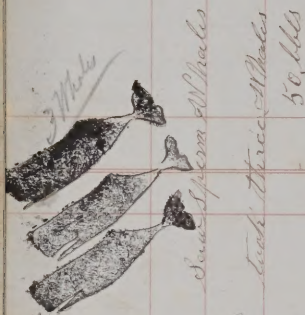 3 Whales
Saw Sperm Whales
took three Whales
50 bbls